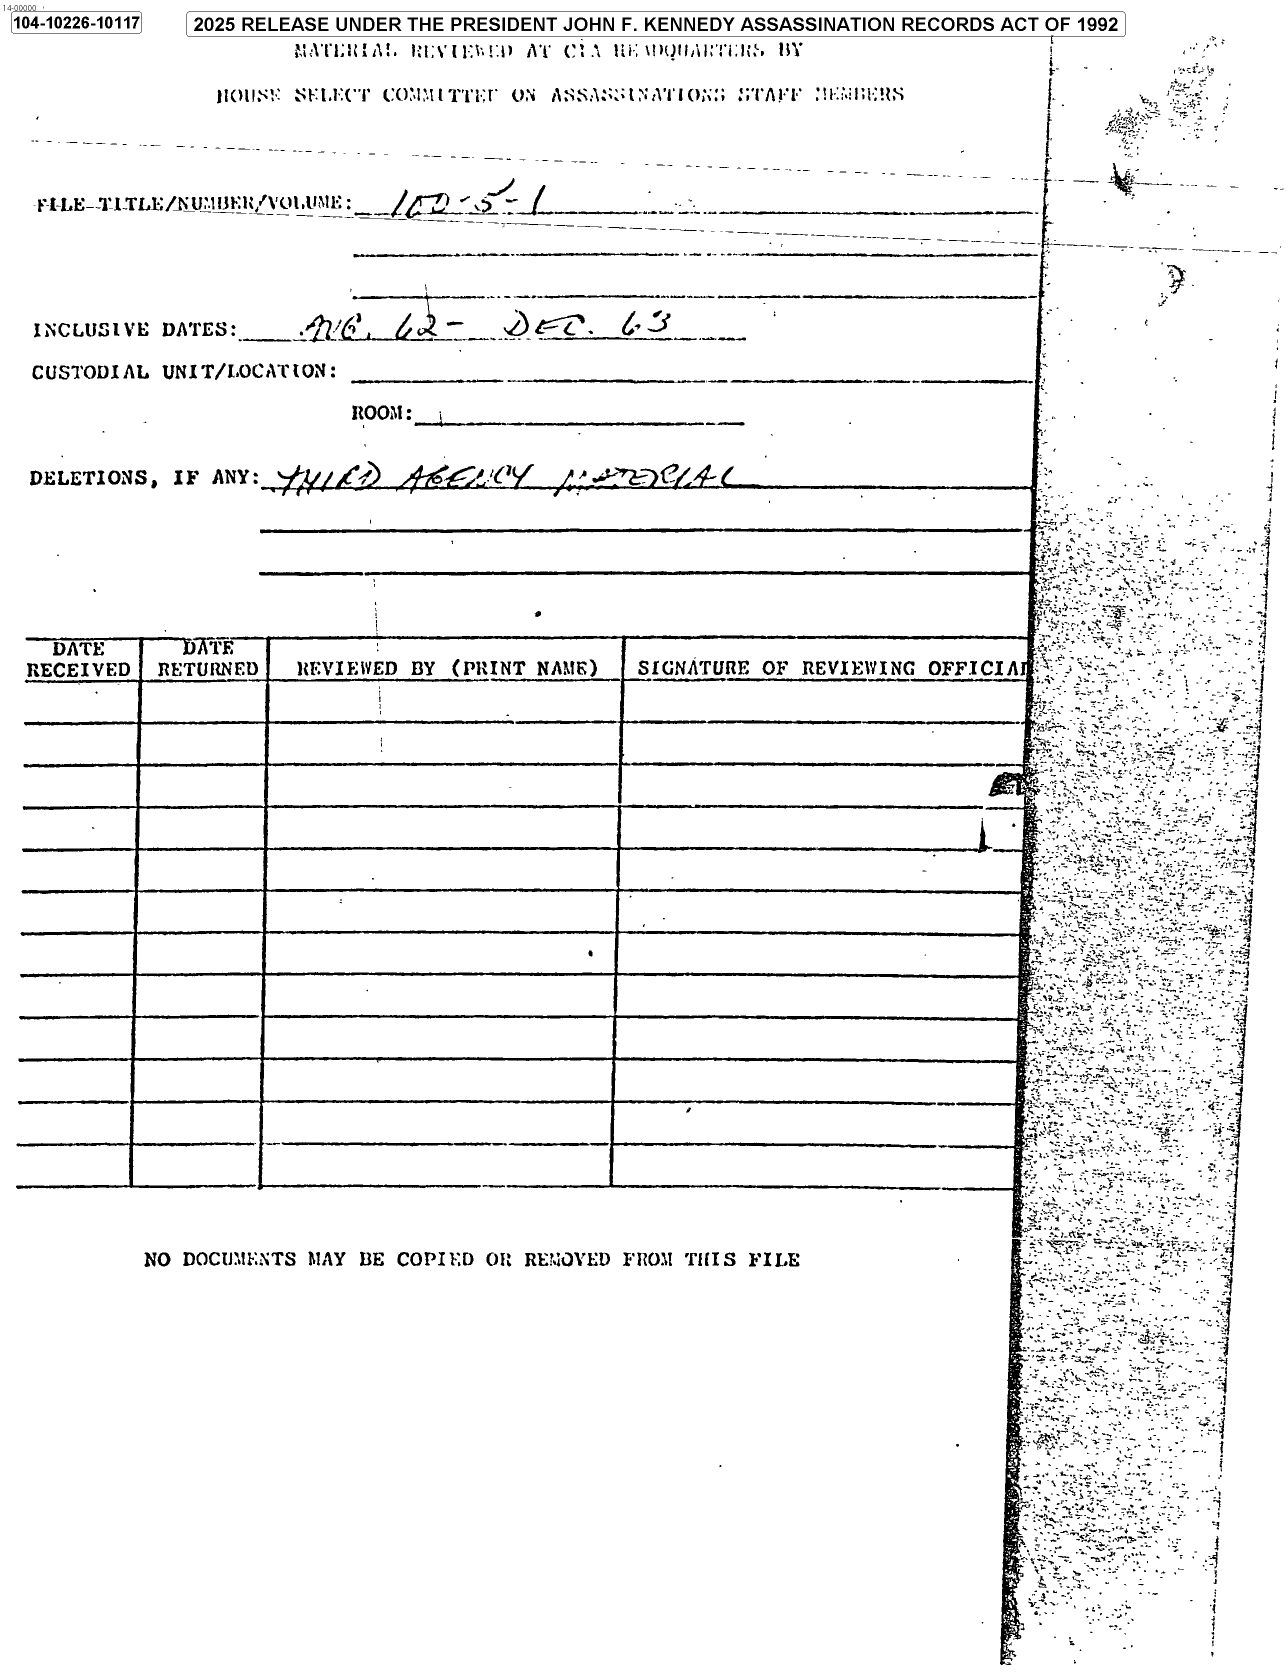 14-00000
104-10226-10117
2025 RELEASE UNDER THE PRESIDENT JOHN F. KENNEDY ASSASSINATION RECORDS ACT OF 1992
MATERIAL REVIEWED AT CIA HEADQUARTERS BY
HOUSE SELECT COMMITTEE ON ASSASSINATIONS STAFF MEMBERS
FILE TITLE/NUMBER/VOLUME: 100-5-1
INCLUSIVE DATES: AUG. 62 - DEC. 63
CUSTODIAL UNIT/LOCATION:
ROOM:
DELETIONS, IF ANY: THIRD AGENCY MATERIAL
DATE RECEIVED DATE RETURNED REVIEWED BY (PRINT NAME) SIGNATURE OF REVIEWING OFFICIAL
NO DOCUMENTS MAY BE COPIED OR REMOVED FROM THIS FILE